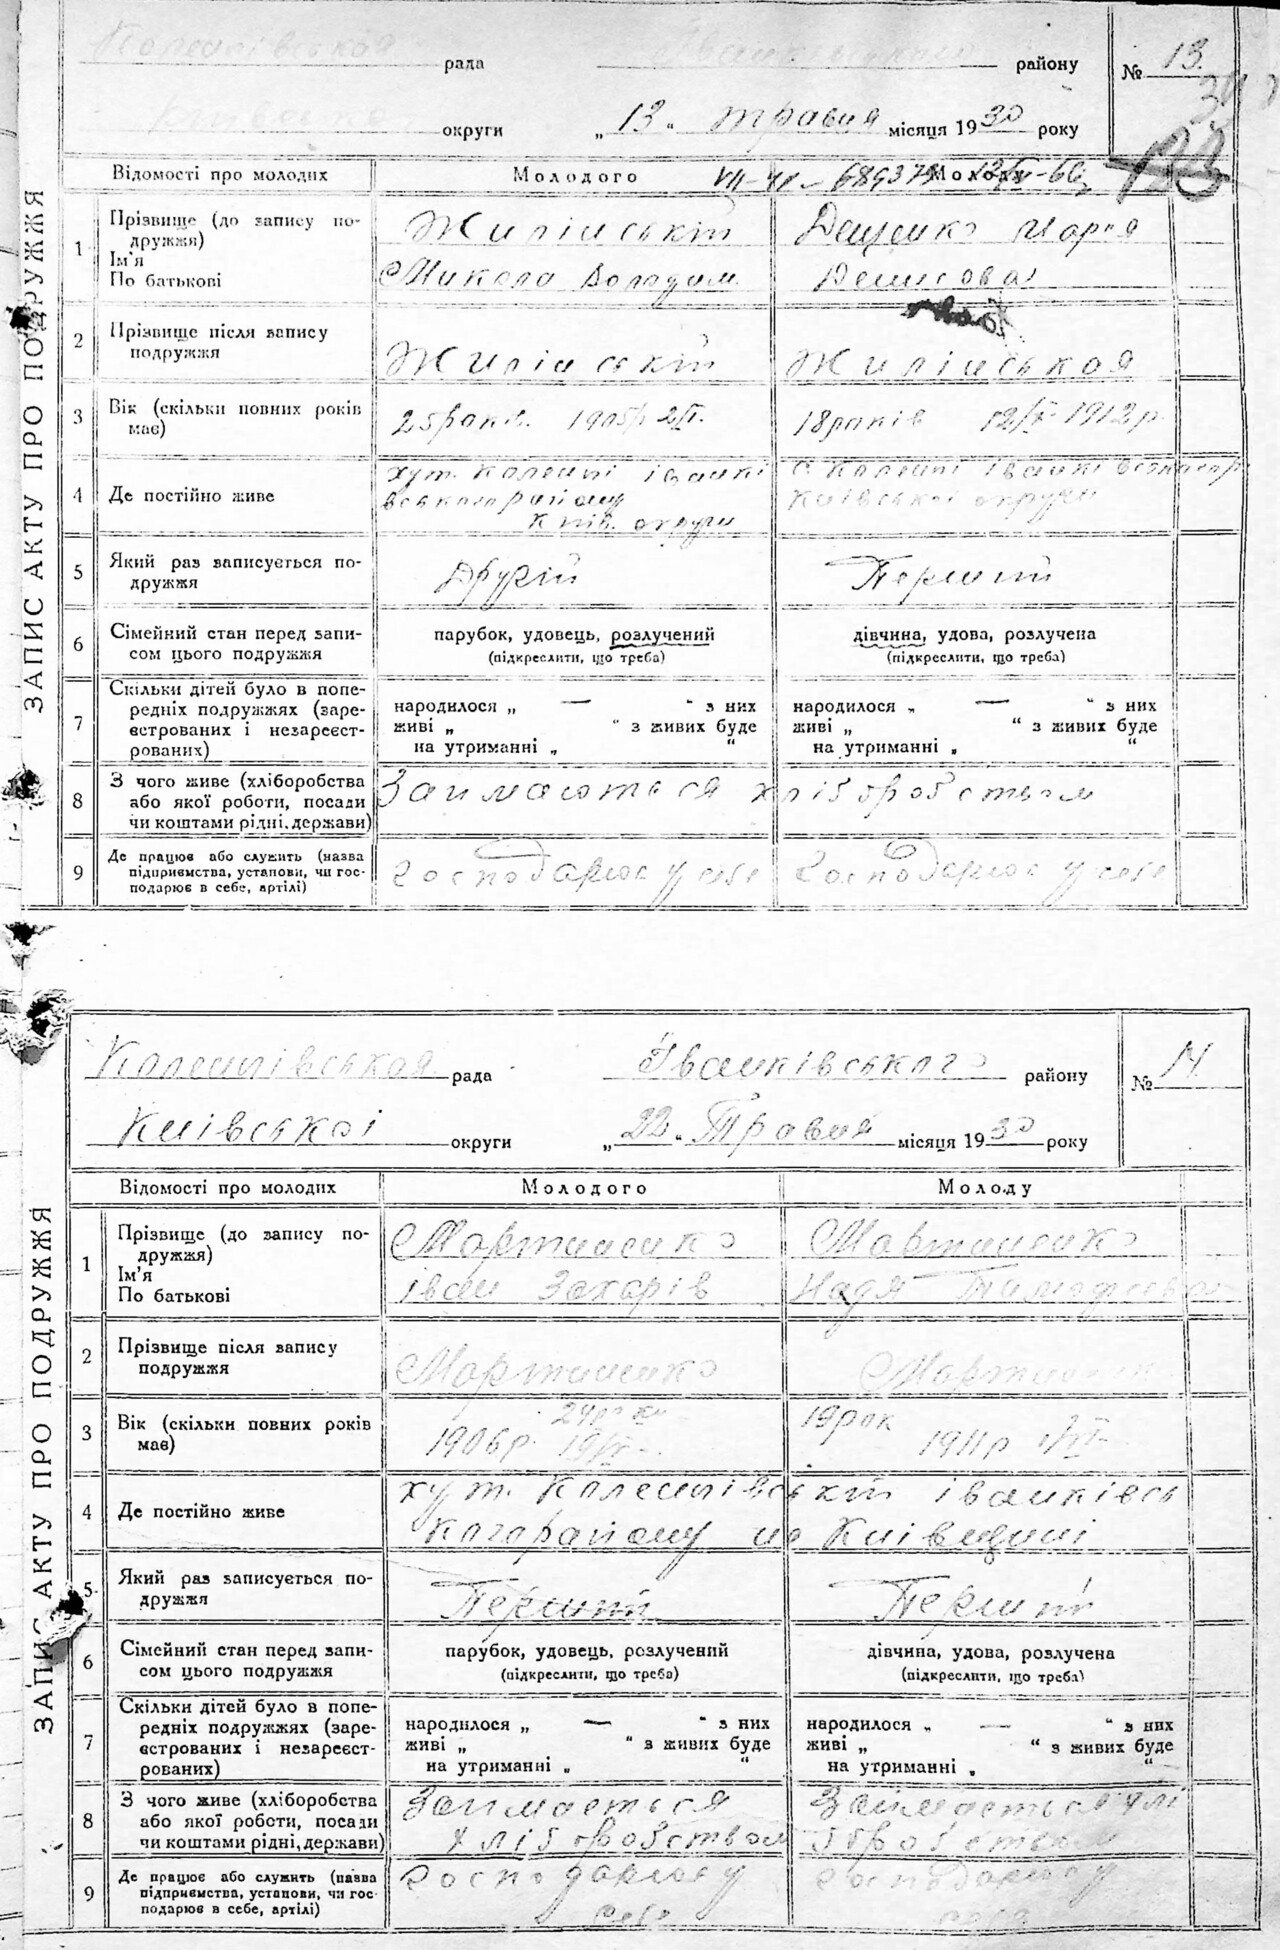 Колентівськая рада Іванківського району № 13.
Київської округи „13“ травня місяця 1930 року
ЗАПИС АКТУ ПРО ПОДРУЖЖЯ
Відомості про молодих Молодого Молоду
VII-ЧЛ 689379 12/IV-66
1 Прізвище (до запису по-
дружжя)
Ім'я
По батькові
Жилінській
Микола Володим.
Дещенко Марія
Денисова
2 Прізвище після запису
подружжя
Жилінській Жилінськая
3 Вік (скільки повних років
має)
25 років. 1905р 2/V. 18 років 12/V 1912 р.
4 Де постійно живе
хут. Коленці іванкі
вського району
Київ. округи
с. Коленці іванківського р
Київської округи
5 Який раз записується по-
дружжя
Другій Першій
6 Сімейний стан перед запи-
сом цього подружжя
парубок, удовець, розлучений
(підкреслити, що треба)
дівчина, удова, розлучена
(підкреслити, що треба)
7 Скільки дітей було в попе-
редніх подружжях (заре-
єстрованих і незареєст-
рованих)
народилося „ — “ з них
живі „ “ з живих буде
на утриманні „ “
народилося „ — “ з них
живі „ “ з живих буде
на утриманні „ “
8 З чого живе (хліборобства
або якої роботи, посади
чи коштами рідні, держави)
Займаються хліборобством
9 Де працює або служить (назва
підприємства, установи, чи гос-
подарює в себе, артілі)
Господарює у себе Господарює у себе
Коленцівськая рада Іванківського району № 14.
Київської округи „22“ Травня місяця 1930 року
ЗАПИС АКТУ ПРО ПОДРУЖЖЯ
Відомості про молодих Молодого Молоду
1 Прізвище (до запису по-
дружжя)
Ім'я
По батькові
Мартиненко
іван Захарів
Мартиненко
Надя Тимофієва
2 Прізвище після запису
подружжя
Мартиненко Мартиненко
3 Вік (скільки повних років
має)
24
1906р. 19/IV
19 рок
1911р
4 Де постійно живе
хут. Коленцівській іванківсь
кого району на Київщині
5 Який раз записується по-
дружжя
Першій Першій
6 Сімейний стан перед запи-
сом цього подружжя
парубок, удовець, розлучений
(підкреслити, що треба)
дівчина, удова, розлучена
(підкреслити, що треба)
7 Скільки дітей було в попе-
редніх подружжях (заре-
єстрованих і незареєст-
рованих)
народилося „ — “ з них
живі „ “ з живих буде
на утриманні „ “
народилося „ — “ з них
живі „ “ з живих буде
на утриманні „ “
8 З чого живе (хліборобства
або якої роботи, посади
чи коштами рідні, держави)
Займається
хліборобством
Займається хлі
боробством
9 Де працює або служить (назва
підприємства, установи, чи гос-
подарює в себе, артілі)
Господарює у
себе
Господарює у
себе